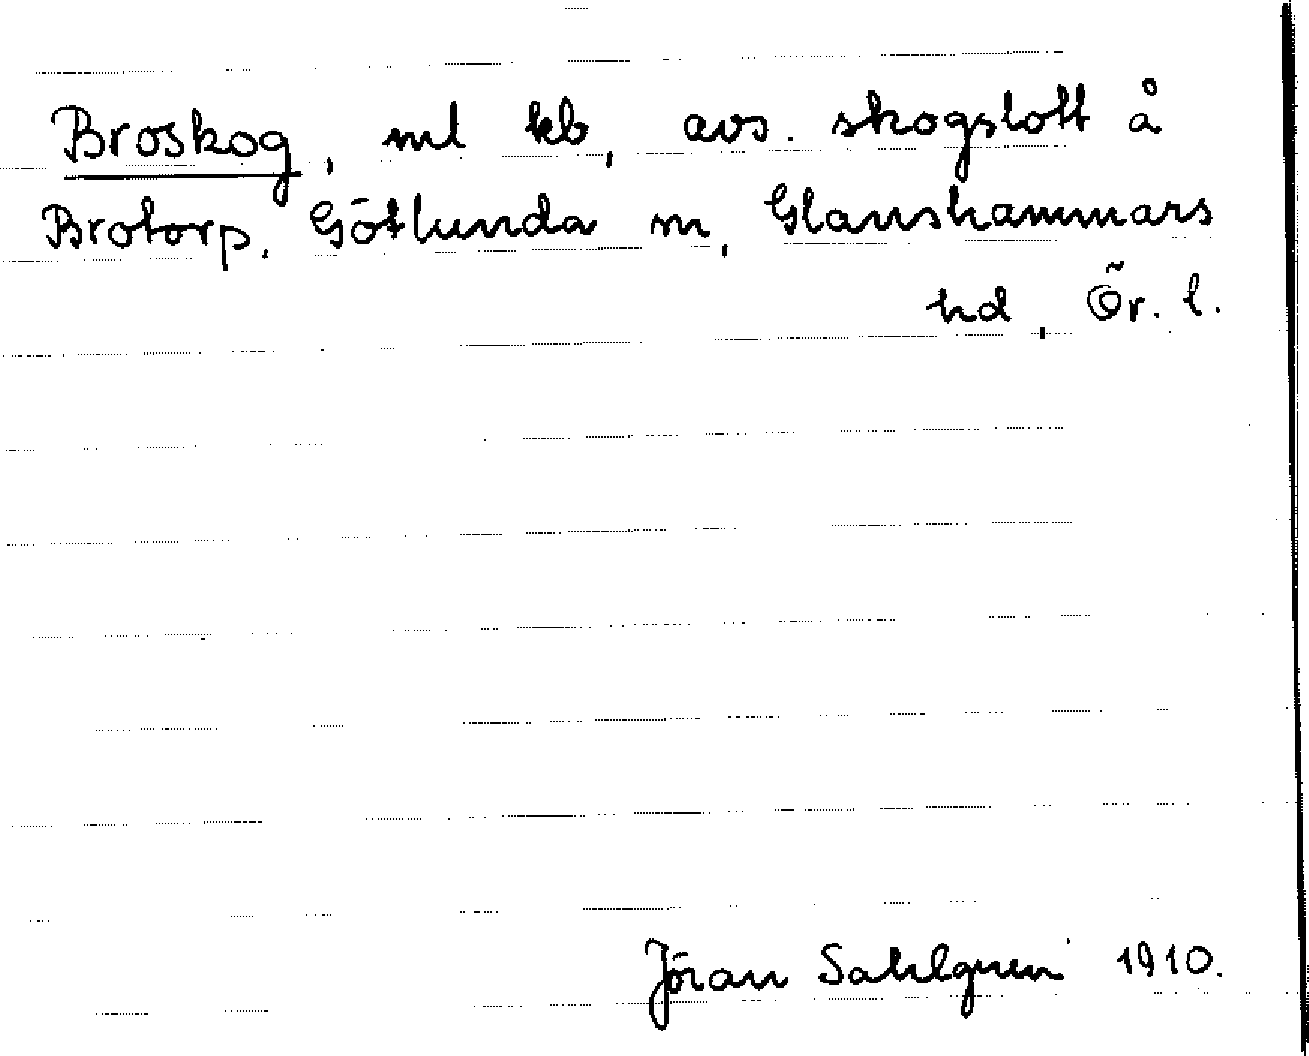 Broskog, ml kb, avs. skogslott å
Brotorp, Götlunda sn, Glanshammars
hd, Ör. l.
Jöran Sahlgren 1910.